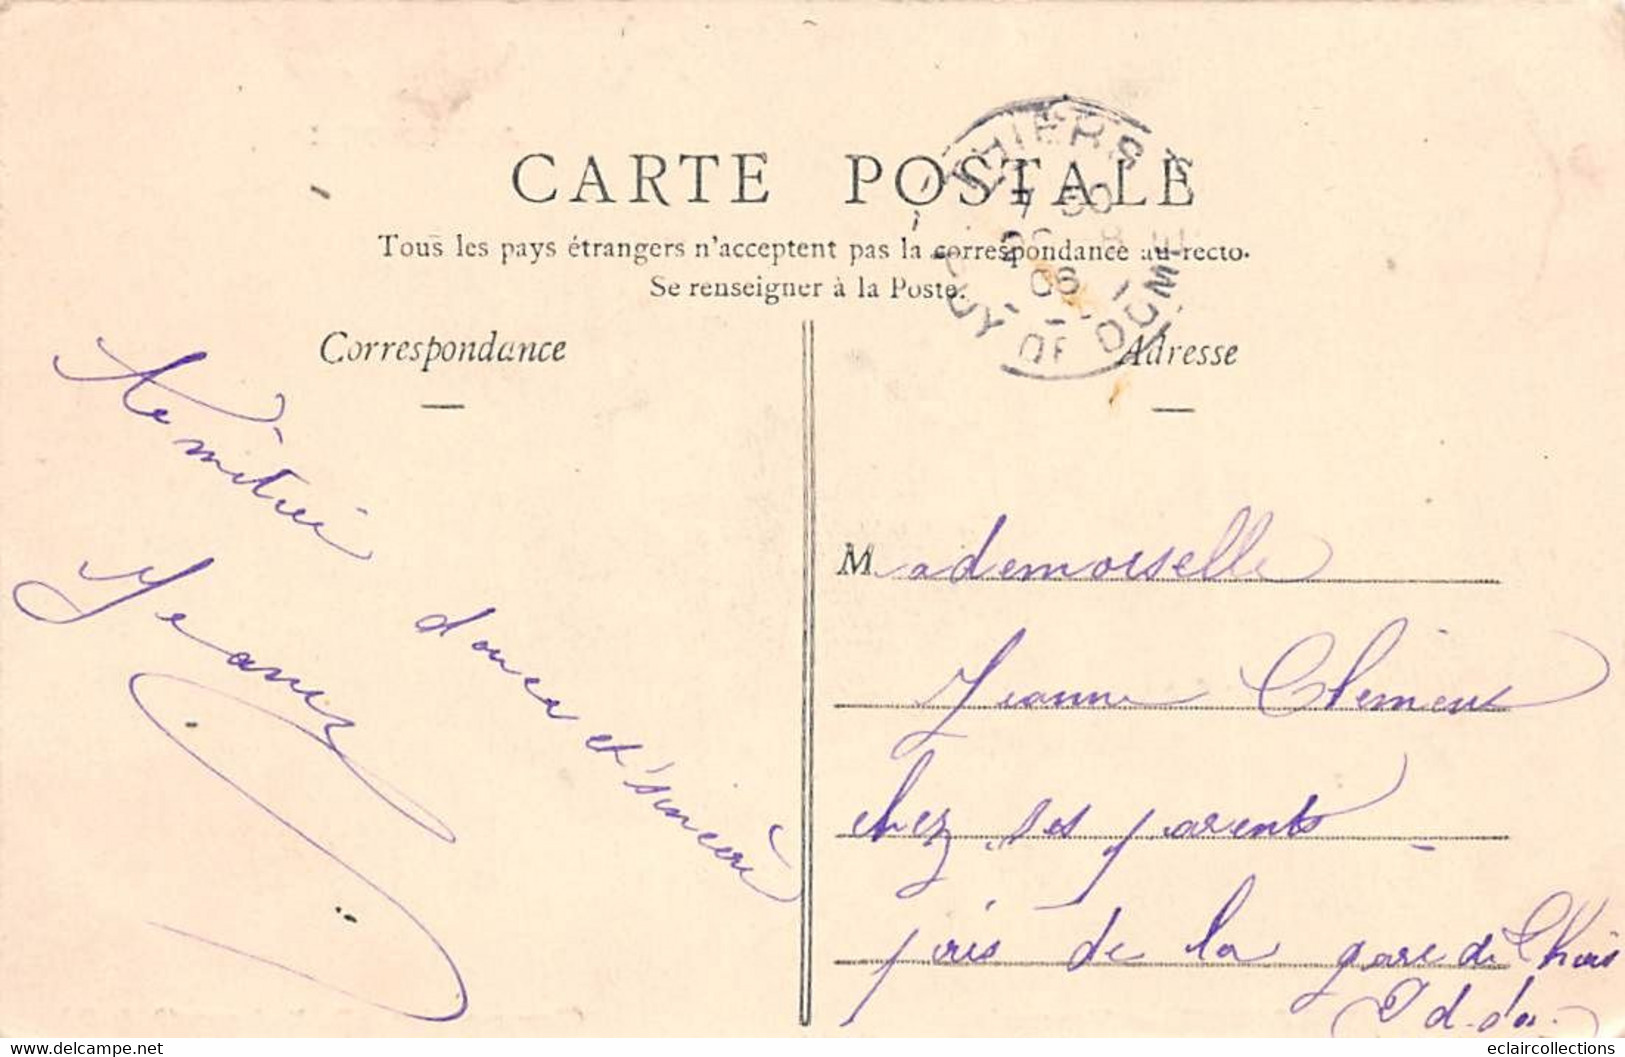 CARTE POSTALE
Tous les pays étrangers n'acceptent pas la correspondance au recto.
Se renseigner à la Poste.
THIERS
7 50
06
PUY DE DOME
Correspondance
Adresse
douce et sincère
Mademoiselle
Jeanne Clement
chez ses parents
près de la gare de Thiers
P d. do.
delcampe.net
eclaircollections